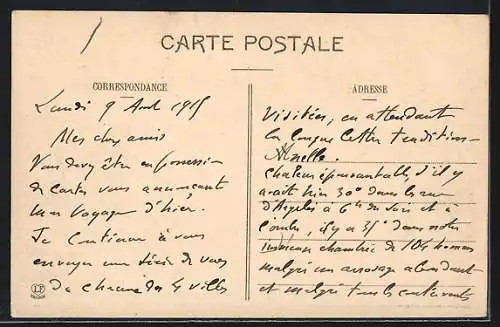 CARTE POSTALE
CORRESPONDANCE
Lundi 9 Aout 1915
Mes chers amis
Vous devez être en possession
de cartes vous annonçant
mon voyage d'hier.
Je continue à vous
envoyer une série de vues
de chacune des 4 villes
LF
ADRESSE
Visitées, en attendant
la longue lettre tradition-
nelle.
Chaleur épouvantable, s'il y
avait hier 30° dans les rues
d'Argelès à 6h du soir et à
l'ombre, il y a 35° dans notre
chambre de 104 hommes
malgré un arrosage abondant
et malgré tous les